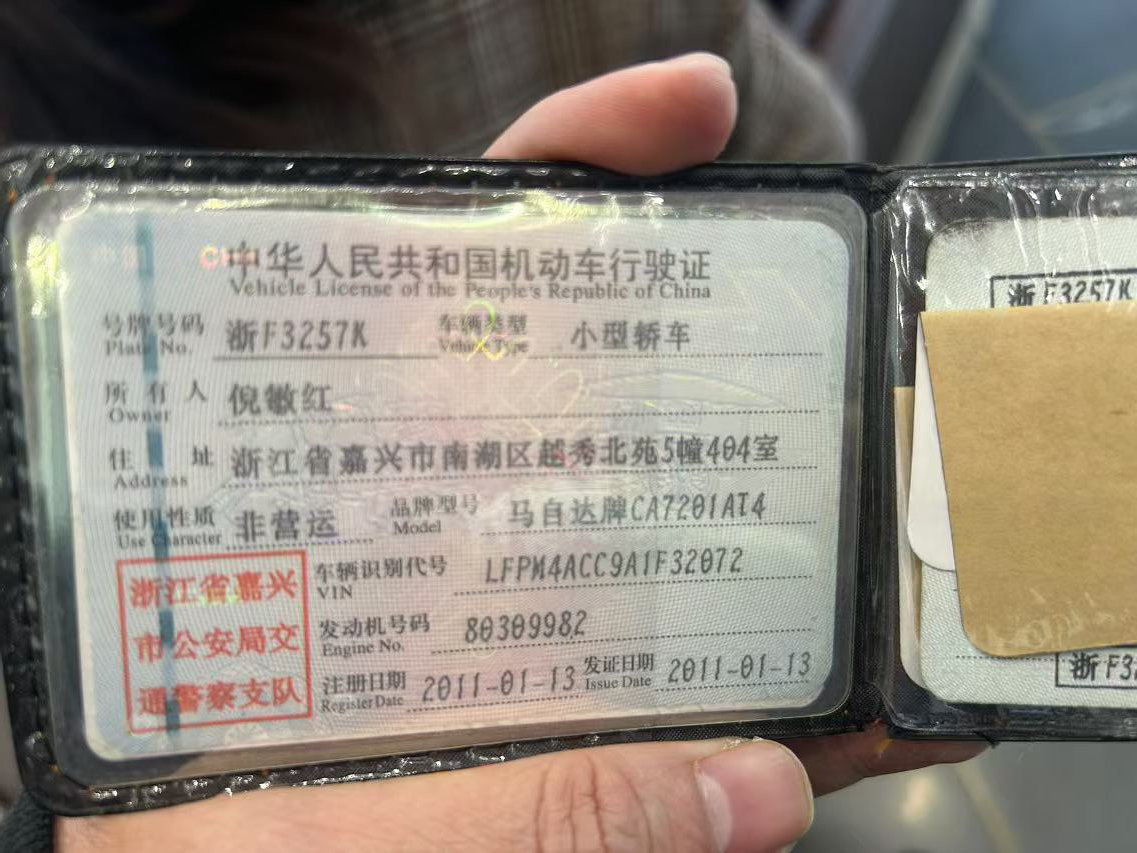 中华人民共和国机动车行驶证
Vehicle License of the People's Republic of China
号牌号码 浙F3257K 车辆类型 小型轿车
Plate No. Vehicle Type
所有人 倪敏红
Owner
住址 浙江省嘉兴市南湖区越秀北苑5幢404室
Address
使用性质 非营运 品牌型号 马自达牌CA7201AT4
Use Character Model
浙江省嘉兴
市公安局交
通警察支队
车辆识别代号 LFPM4ACC9A1F32072
VIN
发动机号码 80309982
Engine No.
注册日期 2011-01-13 发证日期 2011-01-13
Register Date Issue Date
浙F3257K
浙F3